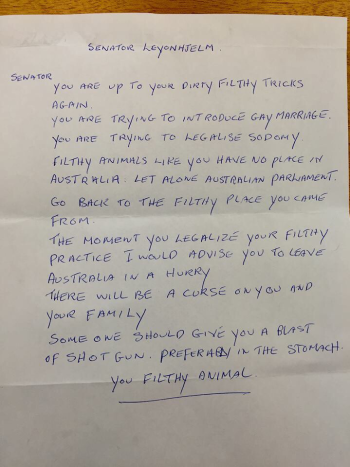 SENATOR LEYONHJELM.
SENATOR
YOU ARE UP TO YOUR DIRTY FILTHY TRICKS
AGAIN.
YOU ARE TRYING TO INTRODUCE GAY MARRIAGE.
YOU ARE TRYING TO LEGALISE SODOMY.
FILTHY ANIMALS LIKE YOU HAVE NO PLACE IN
AUSTRALIA. LET ALONE AUSTRALIAN PARLIAMENT.
GO BACK TO THE FILTHY PLACE YOU CAME
FROM.
THE MOMENT YOU LEGALIZE YOUR FILTHY
PRACTICE I WOULD ADVISE YOU TO LEAVE
AUSTRALIA IN A HURRY
THERE WILL BE A CURSE ON YOU AND
YOUR FAMILY
SOME ONE SHOULD GIVE YOU A BLAST
OF SHOT GUN. PREFERABLY IN THE STOMACH.
YOU FILTHY ANIMAL